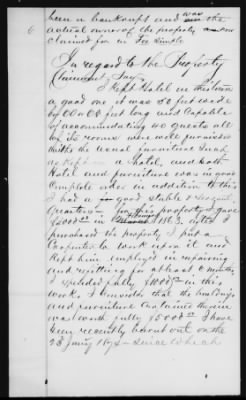 6 been a bankrupt and was the
actual owner of the property now
claimed for in Fee Simple
In regard to the Property
Claimant Says
I kept Hotel in
a good one it was 50 feet wide
by 60 or 65 feet long and Capable
of accommodating 40 guests all
of its rooms were well furnished
with the usual furniture such
as kept in a hotel, and both
Hotel and furniture was in good
Complete order in addition to this
I had a good stable & Servants
Quarters— for this property I gave
$5000 in 1863, after I
purchased the property I put a
Carpenter to work upon it and
Kept him employed in repairing
and refitting for at least 6 months
I expended fully $1000 in this
work, I consider that the buildings
and furniture contained therein
was worth fully $5000 I have
been recently burnt out on the
23 Jany 1874 — since which